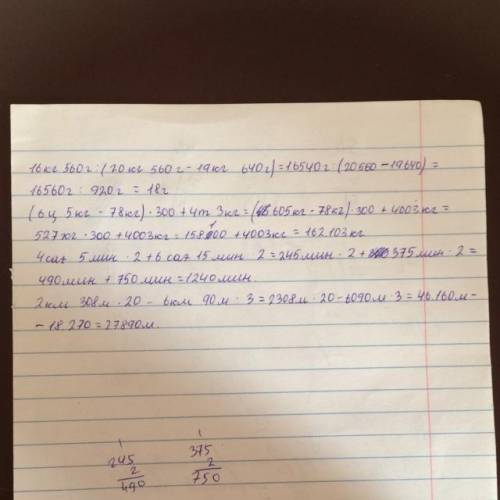 16кг 560г : (20кг 560г - 19кг 640г) = 16540г (20560 - 19640) =
16560г : 920г = 18г
(6ц 5кг - 78кг) · 300 + 4т 3кг = (605кг - 78кг) · 300 + 4003кг =
527кг · 300 + 4003кг = 158100 + 4003кг = 162.103кг
4саг 5мин · 2 + 6саг 15мин · 2 = 245мин · 2 + 375мин · 2 =
490мин + 750мин = 1240мин.
2км 308м · 20 - 6км 90м · 3 = 2308м · 20 - 6090м · 3 = 46.160м -
- 18.270 = 27890м.
1 1
245 375
2 2
490 750